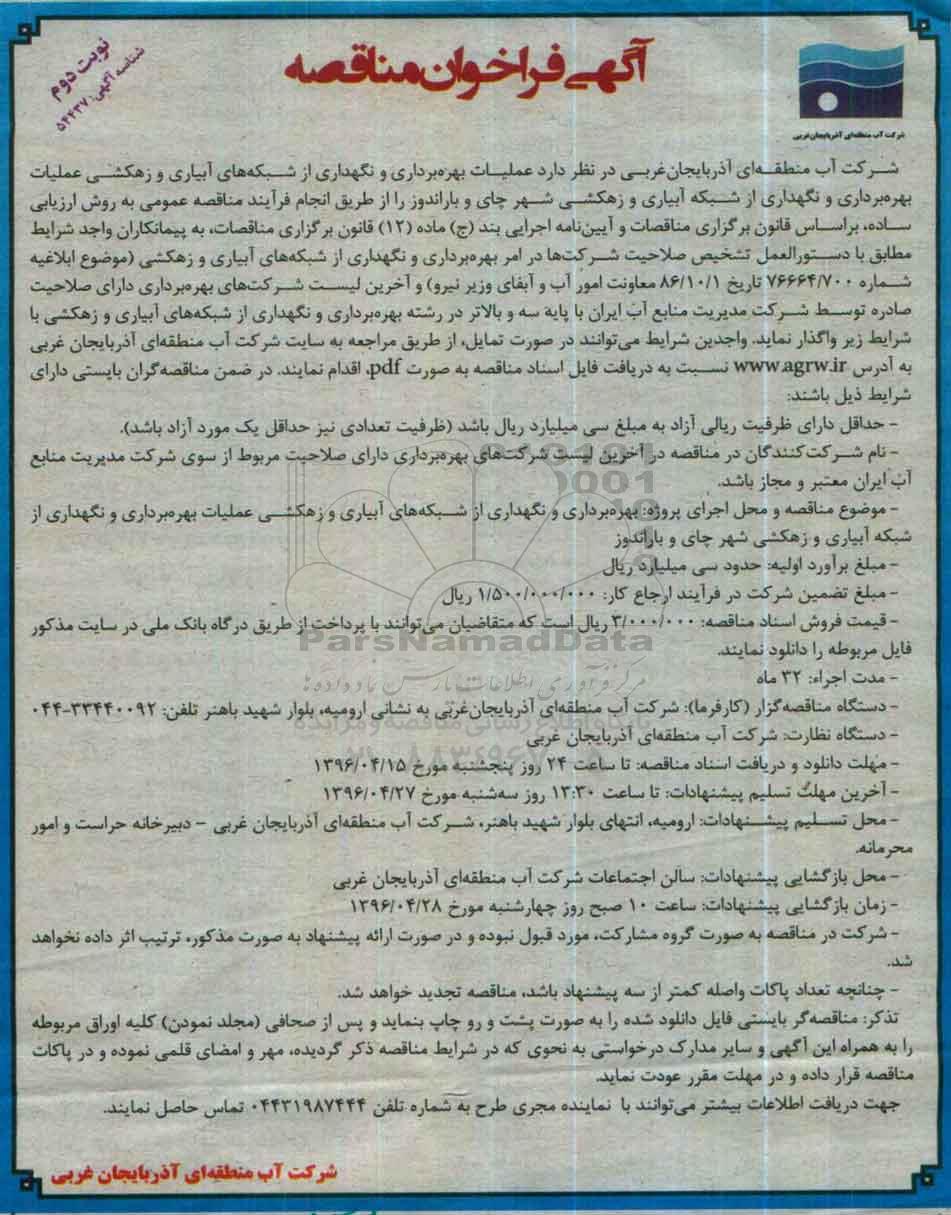 آگهی فراخوان مناقصه
نوبت دوم
شناسه آگهی: ۵۴۴۳۷
شرکت آب منطقه‌ای آذربایجان‌غربی
شرکت آب منطقه‌ای آذربایجان‌غربی در نظر دارد عملیات بهره‌برداری و نگهداری از شبکه‌های آبیاری و زهکشی عملیات
بهره‌برداری و نگهداری از شبکه آبیاری و زهکشی شهر چای و باراندوز را از طریق انجام فرآیند مناقصه عمومی به روش ارزیابی
ساده، براساس قانون برگزاری مناقصات و آیین‌نامه اجرایی بند (ج) ماده (۱۲) قانون برگزاری مناقصات، به پیمانکاران واجد شرایط
مطابق با دستورالعمل تشخیص صلاحیت شرکت‌ها در امر بهره‌برداری و نگهداری از شبکه‌های آبیاری و زهکشی (موضوع ابلاغیه
شماره ۷۶۶۶۴/۷۰۰ تاریخ ۸۶/۱۰/۱ معاونت امور آب و آبفای وزیر نیرو) و آخرین لیست شرکت‌های بهره‌برداری دارای صلاحیت
صادره توسط شرکت مدیریت منابع آب ایران با پایه سه و بالاتر در رشته بهره‌برداری و نگهداری از شبکه‌های آبیاری و زهکشی با
شرایط زیر واگذار نماید. واجدین شرایط می‌توانند در صورت تمایل، از طریق مراجعه به سایت شرکت آب منطقه‌ای آذربایجان غربی
به آدرس www.agrw.ir نسبت به دریافت فایل اسناد مناقصه به صورت pdf، اقدام نمایند. در ضمن مناقصه‌گران بایستی دارای
شرایط ذیل باشند:
- حداقل دارای ظرفیت ریالی آزاد به مبلغ سی میلیارد ریال باشد (ظرفیت تعدادی نیز حداقل یک مورد آزاد باشد).
- نام شرکت‌کنندگان در مناقصه در آخرین لیست شرکت‌های بهره‌برداری دارای صلاحیت مربوط از سوی شرکت مدیریت منابع
آب ایران معتبر و مجاز باشد.
- موضوع مناقصه و محل اجرای پروژه: بهره‌برداری و نگهداری از شبکه‌های آبیاری و زهکشی عملیات بهره‌برداری و نگهداری از
شبکه آبیاری و زهکشی شهر چای و باراندوز
- مبلغ برآورد اولیه: حدود سی میلیارد ریال
- مبلغ تضمین شرکت در فرآیند ارجاع کار: ۱/۵۰۰/۰۰۰/۰۰۰ ریال
- قیمت فروش اسناد مناقصه: ۳/۰۰۰/۰۰۰ ریال است که متقاضیان می‌توانند با پرداخت از طریق درگاه بانک ملی در سایت مذکور
فایل مربوطه را دانلود نمایند.
ParsNamadData
- مدت اجراء: ۳۲ ماه
- دستگاه مناقصه‌گزار (کارفرما): شرکت آب منطقه‌ای آذربایجان‌غربی به نشانی ارومیه، بلوار شهید باهنر تلفن: ۳۳۴۴۰۰۹۲-۰۴۴
- دستگاه نظارت: شرکت آب منطقه‌ای آذربایجان غربی
- مهلت دانلود و دریافت اسناد مناقصه: تا ساعت ۲۴ روز پنجشنبه مورخ ۱۳۹۶/۰۴/۱۵
- آخرین مهلت تسلیم پیشنهادات: تا ساعت ۱۳:۳۰ روز سه‌شنبه مورخ ۱۳۹۶/۰۴/۲۷
- محل تسلیم پیشنهادات: ارومیه، انتهای بلوار شهید باهنر، شرکت آب منطقه‌ای آذربایجان غربی – دبیرخانه حراست و امور
محرمانه.
- محل بازگشایی پیشنهادات: سالن اجتماعات شرکت آب منطقه‌ای آذربایجان غربی
- زمان بازگشایی پیشنهادات: ساعت ۱۰ صبح روز چهارشنبه مورخ ۱۳۹۶/۰۴/۲۸
- شرکت در مناقصه به صورت گروه مشارکت، مورد قبول نبوده و در صورت ارائه پیشنهاد به صورت مذکور، ترتیب اثر داده نخواهد
شد.
- چنانچه تعداد پاکات واصله کمتر از سه پیشنهاد باشد، مناقصه تجدید خواهد شد.
تذکر: مناقصه‌گر بایستی فایل دانلود شده را به صورت پشت و رو چاپ بنماید و پس از صحافی (مجلد نمودن) کلیه اوراق مربوطه
را به همراه این آگهی و سایر مدارک درخواستی به نحوی که در شرایط مناقصه ذکر گردیده، مهر و امضای قلمی نموده و در پاکات
مناقصه قرار داده و در مهلت مقرر عودت نماید.
جهت دریافت اطلاعات بیشتر می‌توانند با نماینده مجری طرح به شماره تلفن ۰۴۴۳۱۹۸۷۴۴۴ تماس حاصل نمایند.
شرکت آب منطقه‌ای آذربایجان غربی